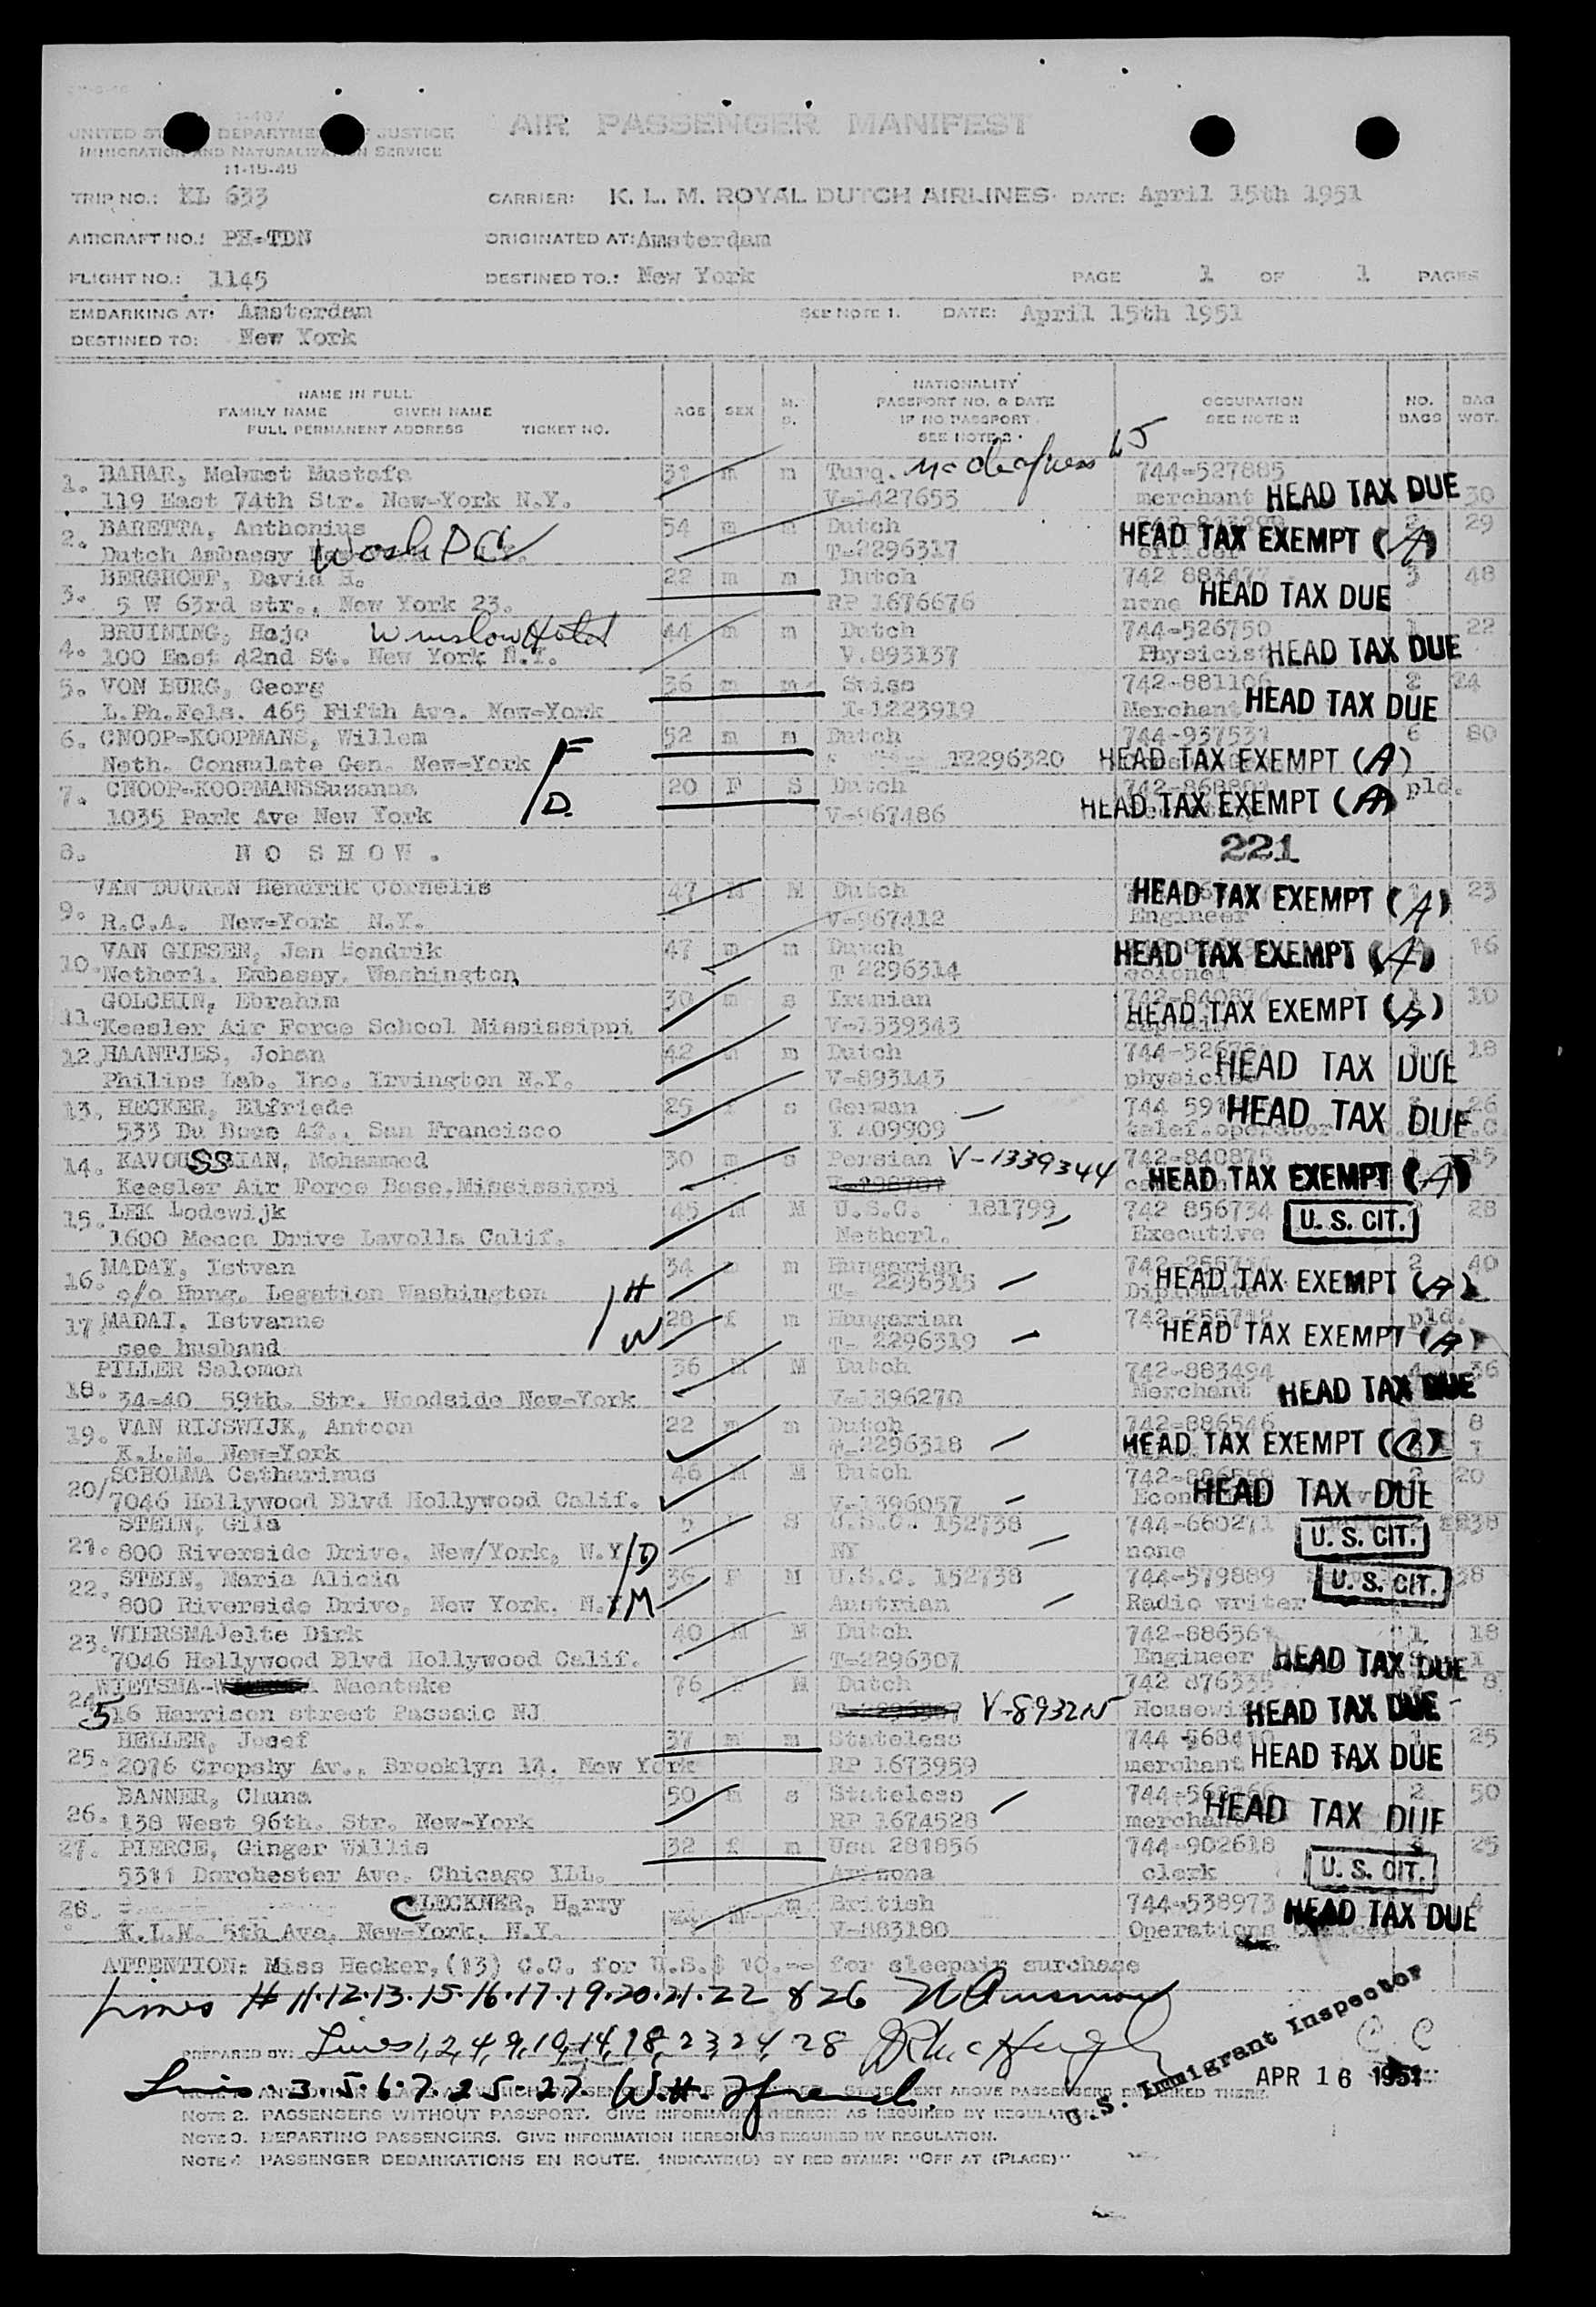 I-407
UNITED STATES DEPARTMENT OF JUSTICE
IMMIGRATION AND NATURALIZATION SERVICE
11-15-45
AIR PASSENGER MANIFEST
TRIP NO.: KL 633 CARRIER: K. L. M. ROYAL DUTCH AIRLINES DATE: April 15th 1951
AIRCRAFT NO.: PH-TDN ORIGINATED AT: Amsterdam
FLIGHT NO.: 1145 DESTINED TO.: New York PAGE 1 OF 1 PAGES
EMBARKING AT: Amsterdam SEE NOTE 1. DATE: April 15th 1951
DESTINED TO: New York
NAME IN FULL
FAMILY NAME GIVEN NAME
FULL PERMANENT ADDRESS TICKET NO.
AGE SEX M. S.
NATIONALITY
PASSPORT NO. & DATE
IF NO PASSPORT
SEE NOTE 2
OCCUPATION
SEE NOTE 2
NO. BAGS
BAG WGT.
1. BAHAR, Mehmet Mustafa 31 m m Turq. 744-527885
119 East 74th Str. New-York N.Y. V-1427655 merchant HEAD TAX DUE 30
2. BARETTA, Anthonius 54 m m Dutch 2 29
Dutch Ambassy Wash DC T-2296317 HEAD TAX EXEMPT (A)
3. BERGHOFF, David H. 22 m m Dutch 742 883477 3 48
5 W 63rd str., New York 23. RP 1676676 none HEAD TAX DUE
4. BRUINING, Hajo Winslow Hotel 44 m m Dutch 744-526750 1 22
100 East 42nd St. New York N.Y. V.893137 Physicist HEAD TAX DUE
5. VON BURG, Georg 36 m m Swiss 742-881106 2 24
L.Ph.Fels. 465 Fifth Ave. New-York I-1223919 Merchant HEAD TAX DUE
6. CNOOP-KOOPMANS, Willem 52 m m Dutch 744-937531 6 80
Neth. Consulate Gen. New-York F T2296320 HEAD TAX EXEMPT (A)
7. CNOOP-KOOPMANSSusanna 20 F S Dutch pld.
1035 Park Ave New York D. V-967486 HEAD TAX EXEMPT (A)
8. NO SHOW. 221
VAN DUUREN Hendrik Cornelis 47 M M Dutch HEAD TAX EXEMPT (A) 1 23
9. R.C.A. New-York N.Y. V-967412 Engineer
10. VAN GIESEN, Jan Hendrik 47 m m Dutch HEAD TAX EXEMPT (A) 16
Netherl. Embassy. Washington T 2296314 colonel
11. GOLCHIN, Ebrahim 30 m s Iranian 1 10
Keesler Air Force School Mississippi V-1339343 captain HEAD TAX EXEMPT (A)
12. HAANTJES, Johan 42 m m Dutch 18
Philips Lab. Inc. Irvington N.Y. V-893143 HEAD TAX DUE
13. HECKER, Elfriede 25 f s German 26
San Francisco HEAD TAX DUE
14. KAVOUSSIAN, Mohammed 30 m s Persian V-1339344 742-840875 1 15
Keesler Air Force Base,Mississippi HEAD TAX EXEMPT (A)
15. LEK Lodewijk 45 M M U.S.C. 181799 742 856734 U. S. CIT. 28
1600 Mecca Drive Lavolla Calif. Netherl. Executive
16. MADAY, Istvan 34 m m Hungarian 2 40
c/o Hung. Legation Washington H T- 2296315 HEAD TAX EXEMPT (A)
17. MADAI, Istvanne 28 f m Hungarian pld.
see husband W T- 2296319 HEAD TAX EXEMPT (A)
PILLER Salomon 36 M M Dutch 742-883494 4 36
18. 34-40 59th. Str. Woodside New-York V-1396270 Merchant HEAD TAX DUE
19. VAN RIJSWIJK, Antoon 22 m m Dutch 742-886546 8
K.L.M. New-York T-2296318 HEAD TAX EXEMPT (C)
SCHOLMA Catharinus 46 M M Dutch 20
20/ 7046 Hollywood Blvd Hollywood Calif. V-1396057 HEAD TAX DUE
STEIN, Gila 5 S U.S.C. 152738 744-660271 38
21. 800 Riverside Drive. New/York, N.Y. D NY none U. S. CIT.
22. STEIN, Maria Alicia 36 F M U.S.C. 152738 744-579889 U. S. CIT. 38
800 Riverside Drive, New York. N.Y. M Austrian Radio writer
23. WIERSMAJelte Dirk 40 M M Dutch 1 18
7046 Hollywood Blvd Hollywood Calif. T-2296307 Engineer HEAD TAX DUE
24. WIETSMA- Naentske 76 M Dutch 742 876335 8
516 Harrison street Passaic NJ Housewife HEAD TAX DUE
25. HELLER, Josef 37 m m Stateless 1 25
2076 Cropshy Av., Brooklyn 14. New York RP 1673959 merchant HEAD TAX DUE
BANNER, Chuna 50 m s Stateless 2 50
26. 138 West 96th. Str. New-York RP 1674528 merchant HEAD TAX DUE
27. PIERCE, Ginger Willis 32 f m Usa 281856 744-902618 3 25
5311 Dorchester Ave. Chicago ILL. Arizona clerk U. S. CIT.
28. CLECKNER, Harry m m British 744-538973 4
K.L.M. 5th Ave. New-York. N.Y. V-883180 Operations HEAD TAX DUE
ATTENTION: Miss Hecker,(13) C.C. for U.S.$ 10.-- for sleepair surcharge
Lines # 11.12.13.15.16.17.19.20.21.22 & 26
PREPARED BY: Lines 1, 2, 4, 9, 10, 14, 18, 23, 24, 28
Lines. 3.5.6.7.25.27. W.H.
U.S. Immigrant Inspector
APR 16 1951
NOTE 2. PASSENGERS WITHOUT PASSPORT. GIVE INFORMATION HEREON AS REQUIRED BY REGULATION.
NOTE 3. DEPARTING PASSENGERS. GIVE INFORMATION HEREON AS REQUIRED BY REGULATION.
NOTE 4 PASSENGER DEBARKATIONS EN ROUTE. INDICATE(D) BY RED STAMP: "OFF AT (PLACE)"